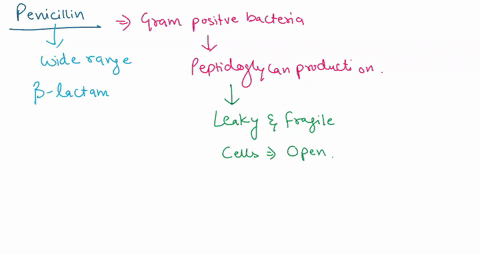 Penicillin ⇒ Gram positve bacteria
↓ ↓
wide range Peptidoglycan production.
β-lactam ↓
Leaky & fragile
Cells ⇒ Open.